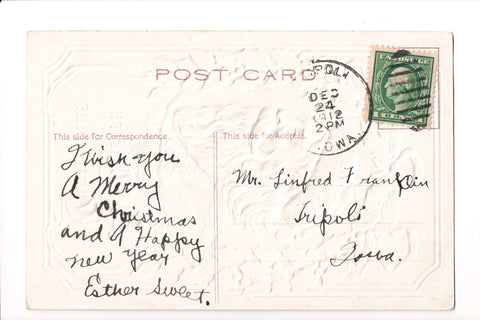 POST CARD
U.S. POSTAGE
POLI
DEC
24
1912
2 PM
OWA.
This side for Correspondence.
This side for Address.
I wish you
A Merry
Christmas
and A Happy
new year
Esther Sweet.
Mr. Linfred
Tripoli
Iowa.